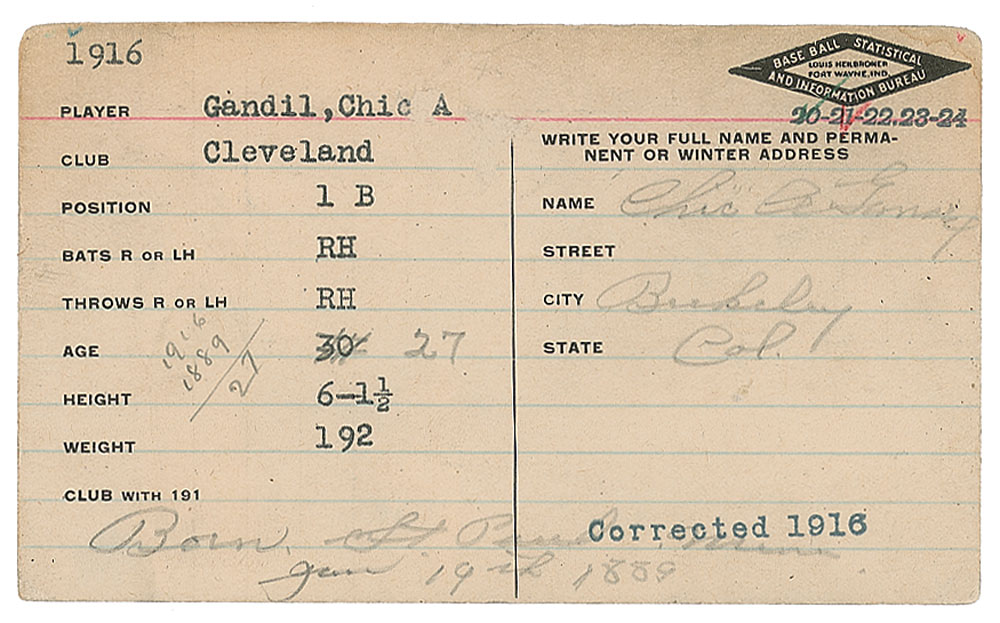 1916
BASE BALL STATISTICAL
LOUIS HEILBRONER
FORT WAYNE, IND.
AND INFORMATION BUREAU
20-21-22.23-24
PLAYER Gandil,Chic A
CLUB Cleveland
POSITION 1 B
BATS R OR LH RH
THROWS R OR LH RH
AGE 30 27
1916
1889
27
HEIGHT 6-1½
WEIGHT 192
CLUB WITH 191
Born. St Paul Minn
Jan 19th 1889
WRITE YOUR FULL NAME AND PERMA-
NENT OR WINTER ADDRESS
NAME Chic A
STREET
CITY Berkeley
STATE Cal.
Corrected 1916